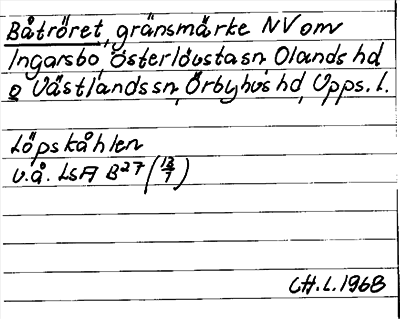 Båtröret, gränsmärke NV om
Ingarsbo, Österlövsta sn, Olands hd
o Västlands sn, Örbyhus hd, Upps. l.
Löpskåhlen
u.å. LSA B27 (13/7)
CH.L.1968